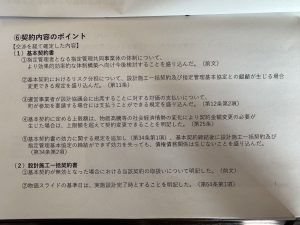 ⑥契約内容のポイント
【交渉を経て確定した内容】
（１）基本契約書
①指定管理者となる指定管理共同事業体の体制について、
より効果的効率的な体制構築へ向け今後検討することを盛り込んだ。（前文）
②基本契約におけるリスク分担について、設計施工一括契約及び指定管理基本協定との齟齬が生じる場合
変更できる規定を盛り込んだ。（第11条）
③運営事業者が設計協議会に出席することに対する対価の支払いについて、
市が特に必要とする場合には支払うことができる規定を盛り込んだ。（第12条第2項）
④基本契約に定める上限額は、物価高騰等の社会経済情勢の変化により契約金額変更の必要が
生じた場合は、上限額を超えて契約変更できることを明記した。（第25条）
⑤基本契約の効力に関する規定を追加し（第34条第1項）、基本契約締結後に設計施工一括契約及び
指定管理基本協定の締結ができず効力を失っても、債権債務関係は生じないことを盛り込んだ。
（第34条第2項）
（２）設計施工一括契約書
①基本契約が無効となった場合における当該契約の取扱いについて明記した。（前文）
②物価スライドの基準日は、実施設計完了時とすることを明記した。（第64条第1項）